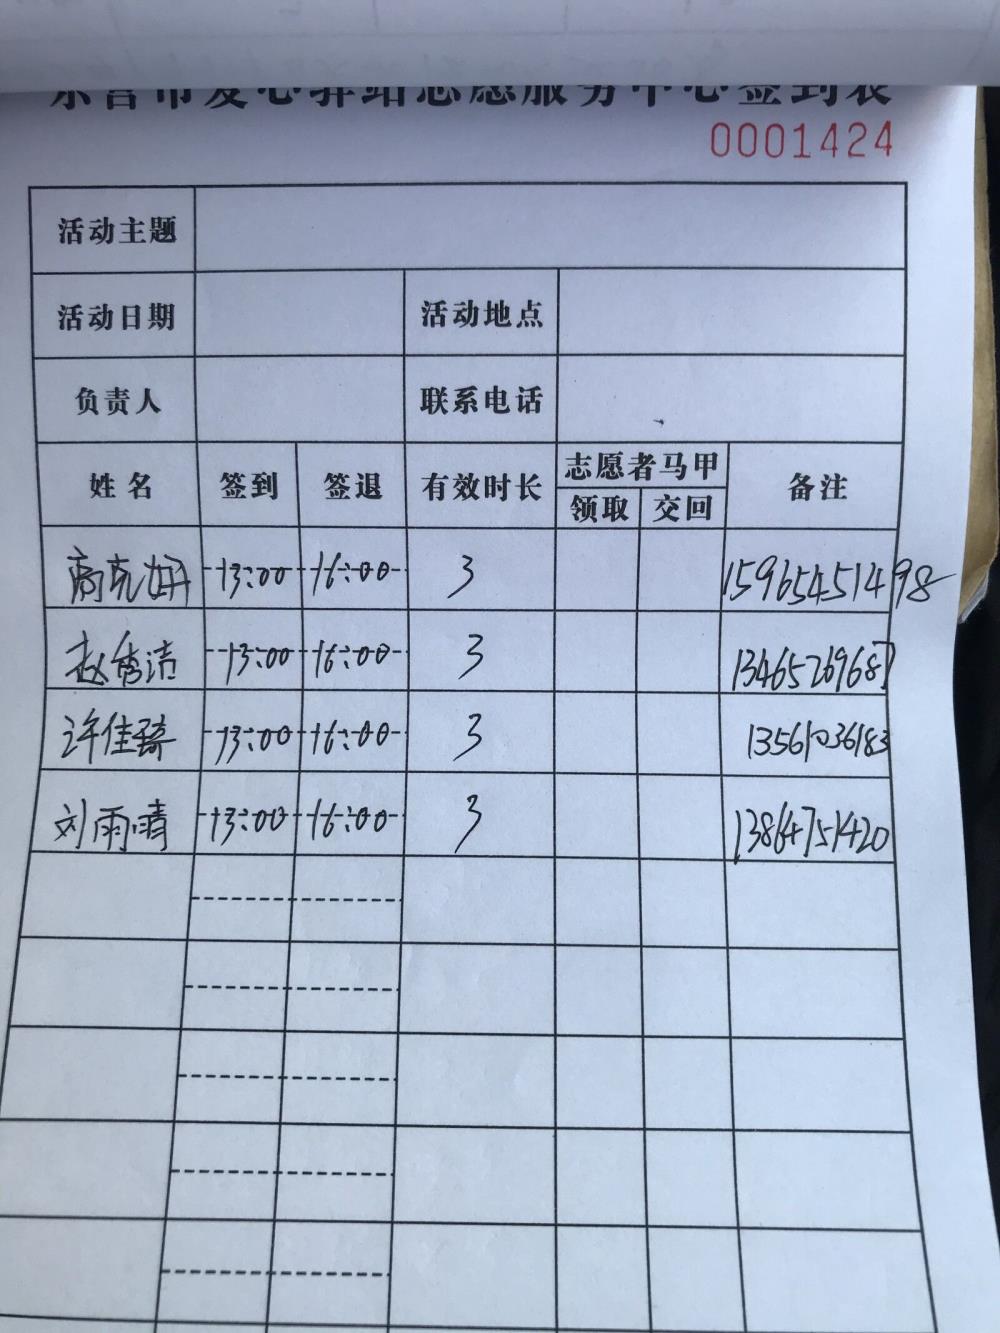 东营市爱心驿站志愿服务中心签到表
0001424
活动主题
活动日期 活动地点
负责人 联系电话
姓名 签到 签退 有效时长 志愿者马甲 备注
领取 交回
13:00 16:00 3 15965451498
赵秀洁 13:00 16:00 3 13465276987
许佳琦 13:00 16:00 3 13561036183
刘雨晴 13:00 16:00 3 13864751420